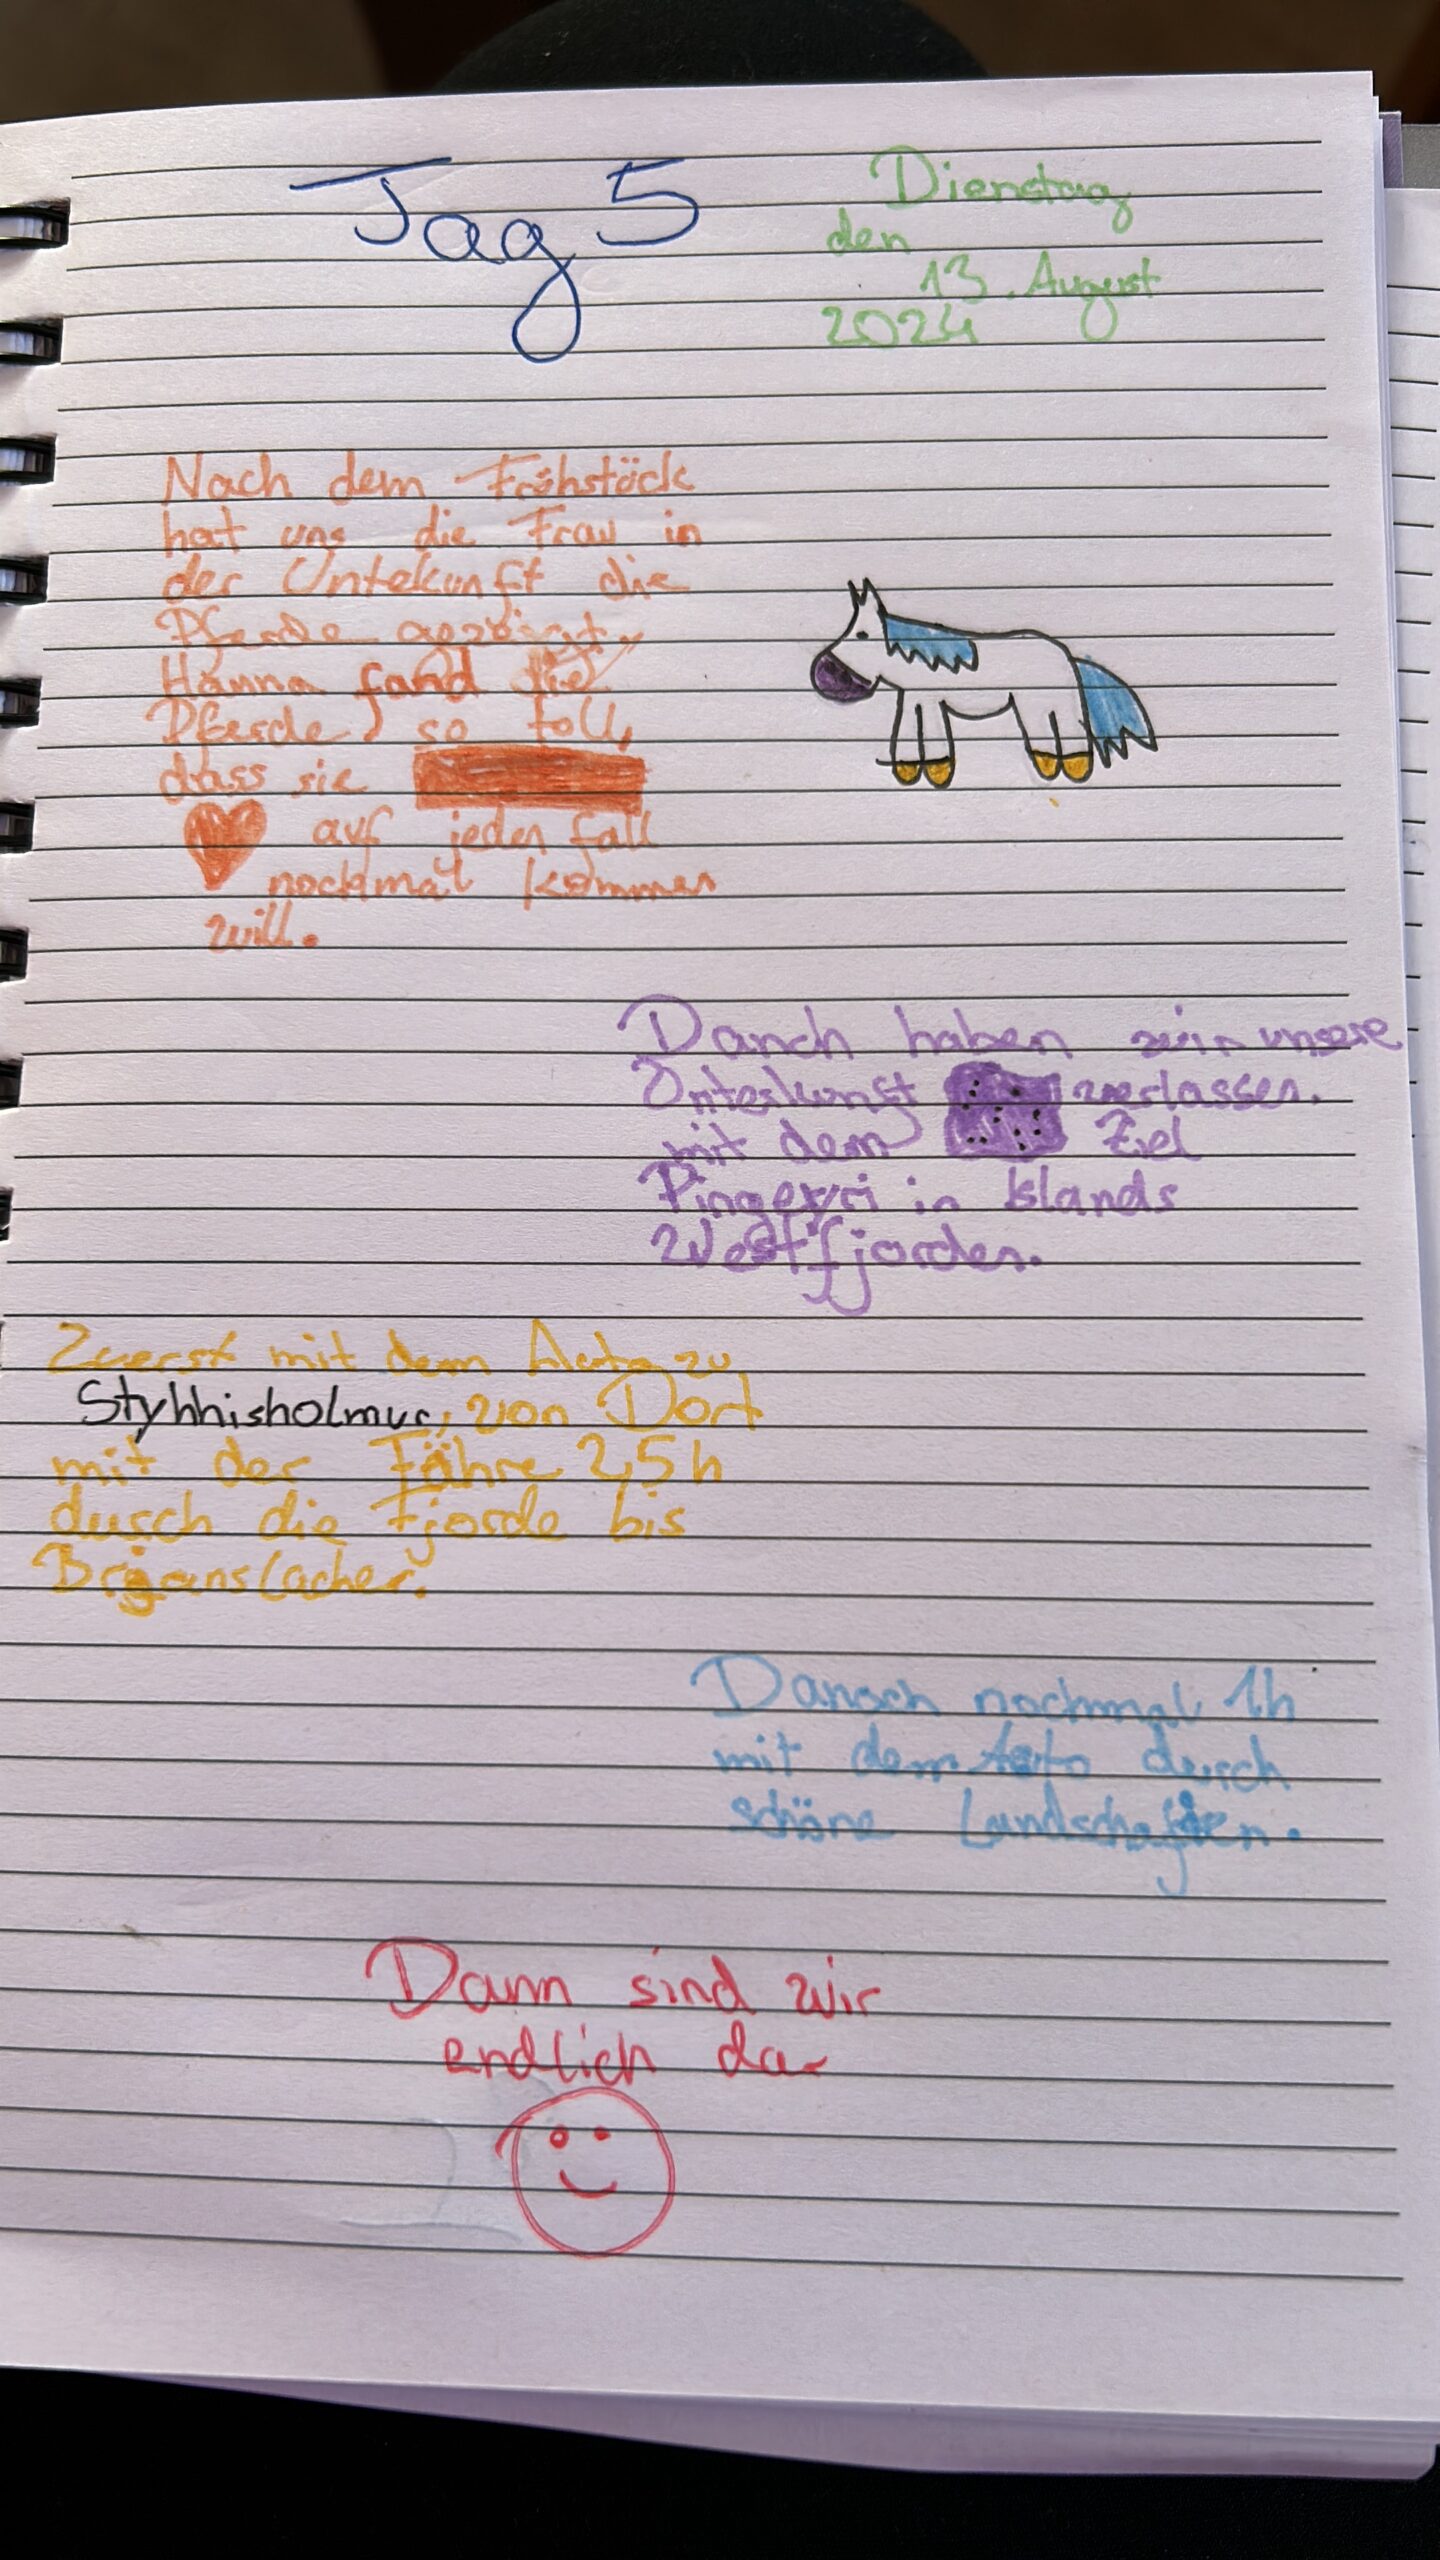 Tag 5
Dienstag
den
13. August
2024
Nach dem Frühstück
hat uns die Frau in
der Untekunft die
Pferde gezeigt,
Hanna fand die
Pferde so toll,
dass sie
auf jeden fall
nochmal kommen
will.
Danch haben wir unsere
Unterkunft verlassen.
mit dem Ziel
Pingeyri in Islands
Westfjorden.
Zuerst mit dem Auto zu
Styhhisholmur, von Dort
mit der Fähre 2,5h
durch die Fjorde bis
Danach nochmal 1h
mit dem Auto durch
schöne Landschaften.
Dann sind wir
endlich da